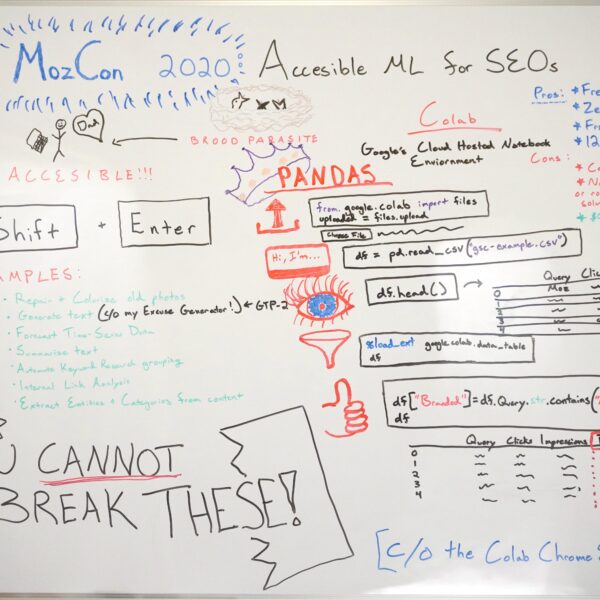 MozCon 2020: Accesible ML for SEOs
Dad
BROOD PARASITE
ACCESIBLE!!!
Shift + Enter
AMPLES:
Repair + Colorize old photos
Generate text (c/o my Excuse Generator!) ← GTP-2
Forecast Time-Series Data
Summarize text
Automate Keyword Research grouping
Internal Link Analysis
Extract Entities + Categories from content
U CANNOT
BREAK THESE!
Colab
Google's Cloud Hosted Notebook
Enviornment
Pros:
* Fre
* Ze
* Fr
* 12
Cons:
* Co
* N
or ro
solu
* $
PANDAS
from google.colab import files
uploaded = files.upload
Choose File
Hi, I'm...
df = pd.read_csv("gsc-example.csv")
df.head()
Query Clic
0 Moz
1
2
3
4
%load_ext google.colab.data_table
df
df["Branded"]=df.Query.str.contains("
df
Query Clicks Impressions
0
1
2
3
4
[c/o the Colab Chrome